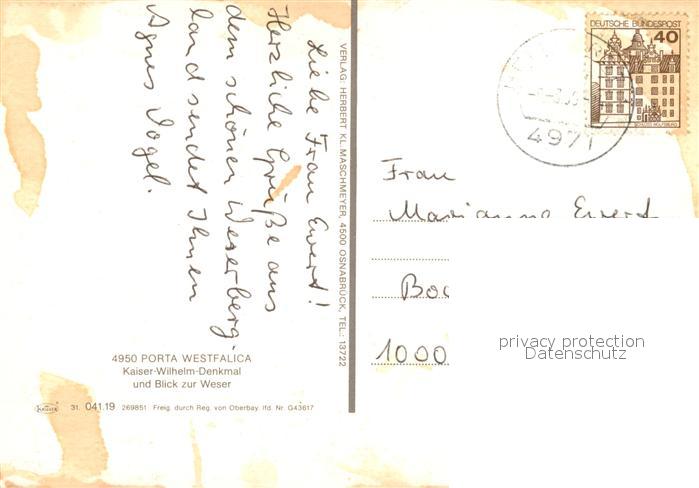 Liebe Frau Ewert!
Herzliche Grüße aus
dem schönen Weserberg-
land sendet Ihnen
Agnes Vogel.
4950 PORTA WESTFALICA
Kaiser-Wilhelm-Denkmal
und Blick zur Weser
KRÜGER
31. 041.19 269851 Freig. durch Reg. von Oberbay. lfd. Nr. G43617
VERLAG: HERBERT KL. MASCHMEYER, 4500 OSNABRÜCK, TEL.: 13722
DEUTSCHE BUNDESPOST
40
SCHLOSS WOLFSBURG
4971
Frau
Marianne Ewert
1000
privacy protection
Datenschutz